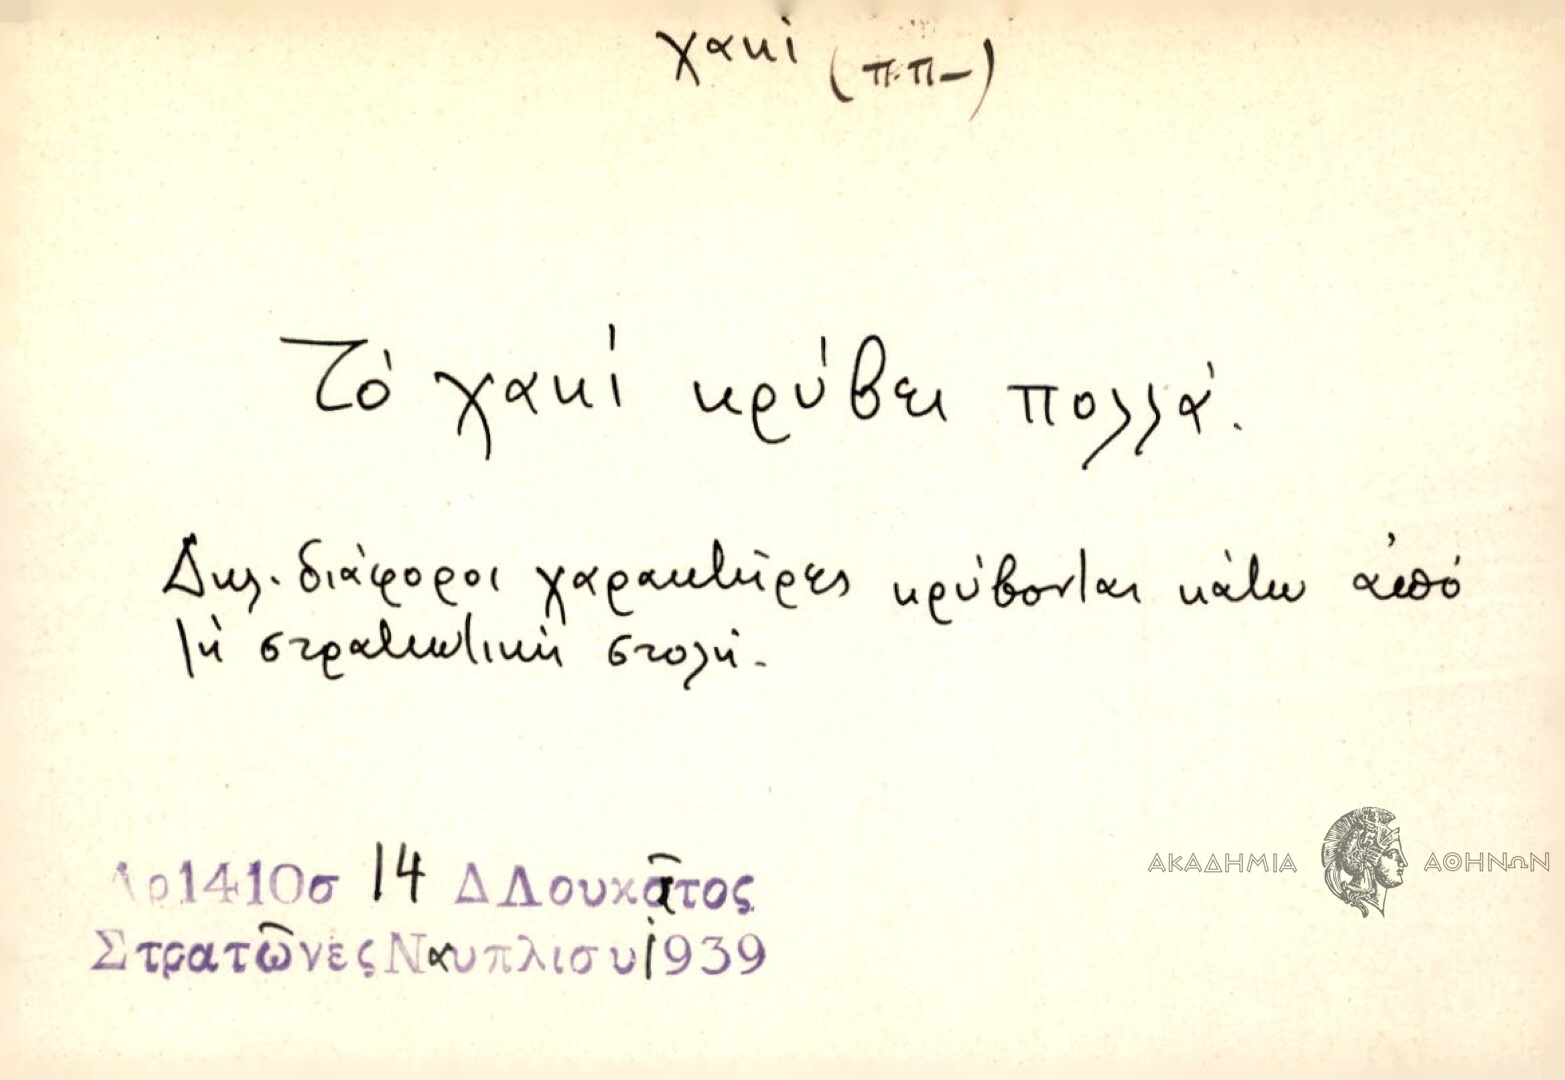 χακί (ππ-)
Τό χακί κρύβει πολλά.
Δηλ. διάφοροι χαρακτῆρες κρύβονται κάτω ἀπό
τή στρατιωτική στολή.
Αρ1410σ 14 Δ Δουκᾶτος
Στρατῶνες Ναυπλίου 1939
ΑΚΑΔΗΜΙΑ ΑΘΗΝΩΝ